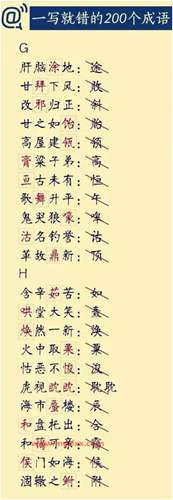 @ 一写就错的200个成语
G
肝脑涂地：途
甘拜下风：败
改邪归正：斜
甘之如饴：贻
高屋建瓴：领
膏粱子弟：高
亘古未有：恒
歌舞升平：午
鬼哭狼嚎：嗥
沽名钓誉：估
革故鼎新：顶
H
含辛茹苦：如
哄堂大笑：轰
焕然一新：涣
火中取栗：粟
怙恶不悛：俊
虎视眈眈：耽耽
海市蜃楼：辰
和盘托出：合
和蔼可亲：霭
侯门如海：候
涸辙之鲋：附